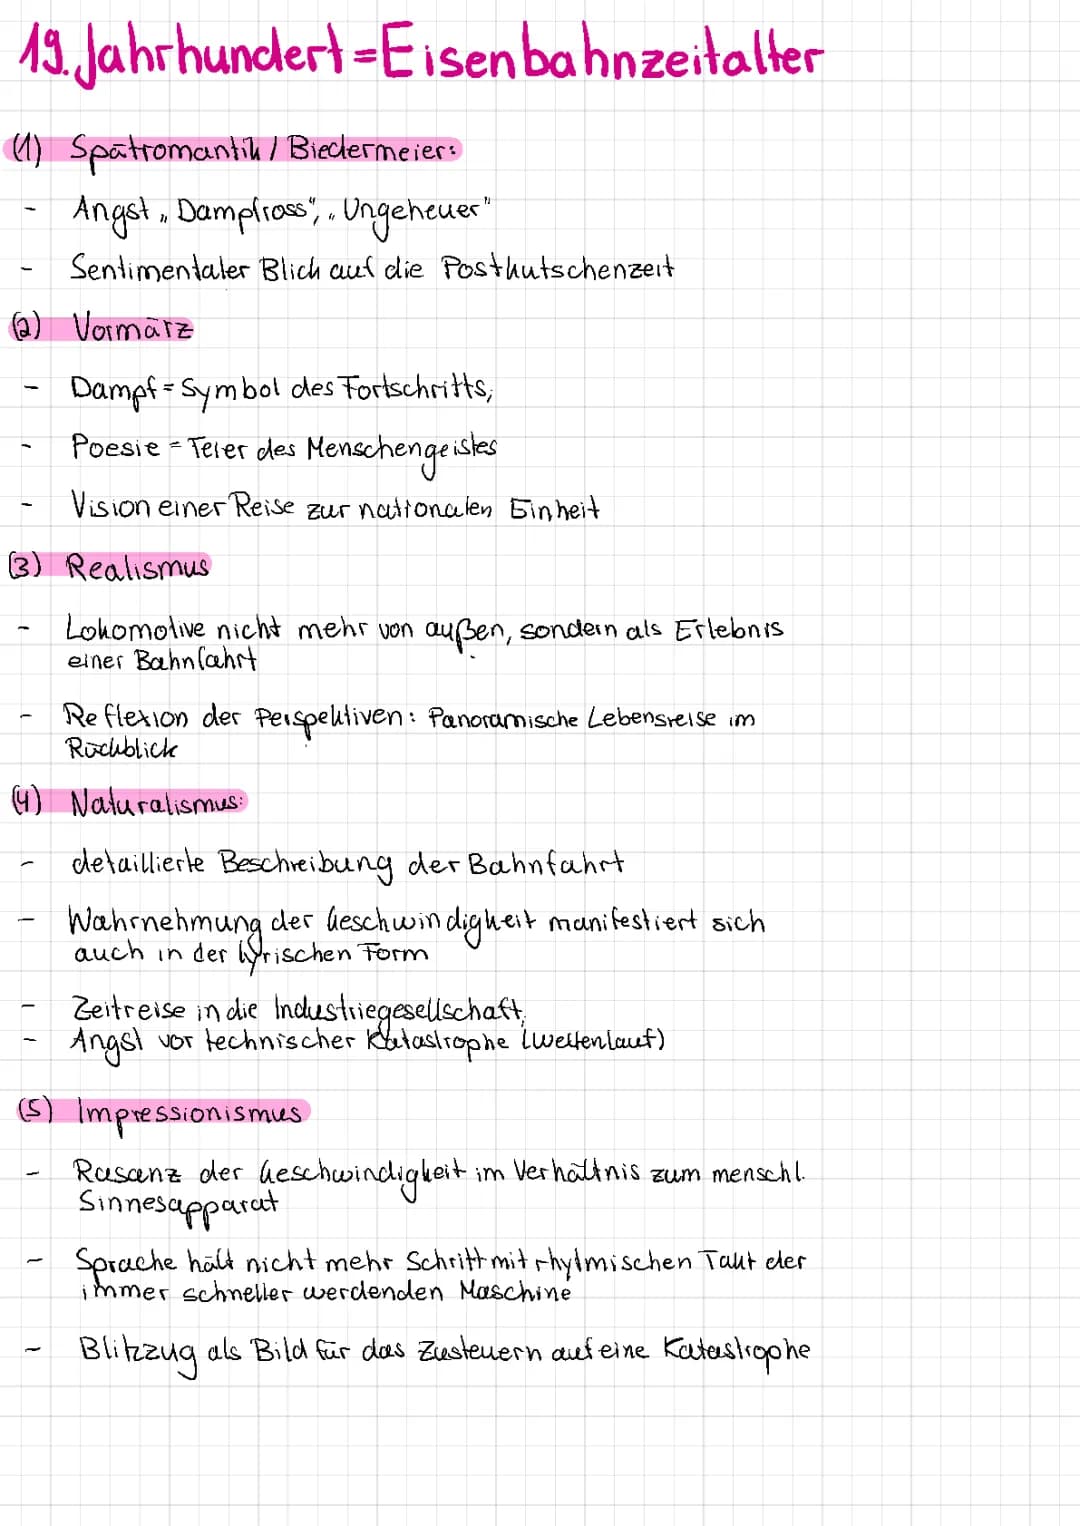 19. Jahrhundert = Eisenbahnzeitalter
(1) Spätromantik / Biedermeier:
- Angst „Dampfross“, „Ungeheuer"
- Sentimentaler Blick auf die Postkutschenzeit
(2) Vormärz
- Dampf = Symbol des Fortschritts;
- Poesie = Feier des Menschengeistes
- Vision einer Reise zur nationalen Einheit
(3) Realismus
- Lokomotive nicht mehr von außen, sondern als Erlebnis
einer Bahnfahrt
- Reflexion der Perspektiven: Panoramische Lebensreise im
Rückblick
(4) Naturalismus:
- detaillierte Beschreibung der Bahnfahrt
- Wahrnehmung der Geschwindigkeit manifestiert sich
auch in der lyrischen Form
- Zeitreise in die Industriegesellschaft;
- Angst vor technischer Katastrophe (Wettenlauf)
(5) Impressionismus
- Rasanz der Geschwindigkeit im Verhältnis zum menschl.
Sinnesapparat
- Sprache hält nicht mehr Schritt mit rhytmischen Takt der
immer schneller werdenden Maschine
- Blitzzug als Bild für das Zusteuern auf eine Katastrophe